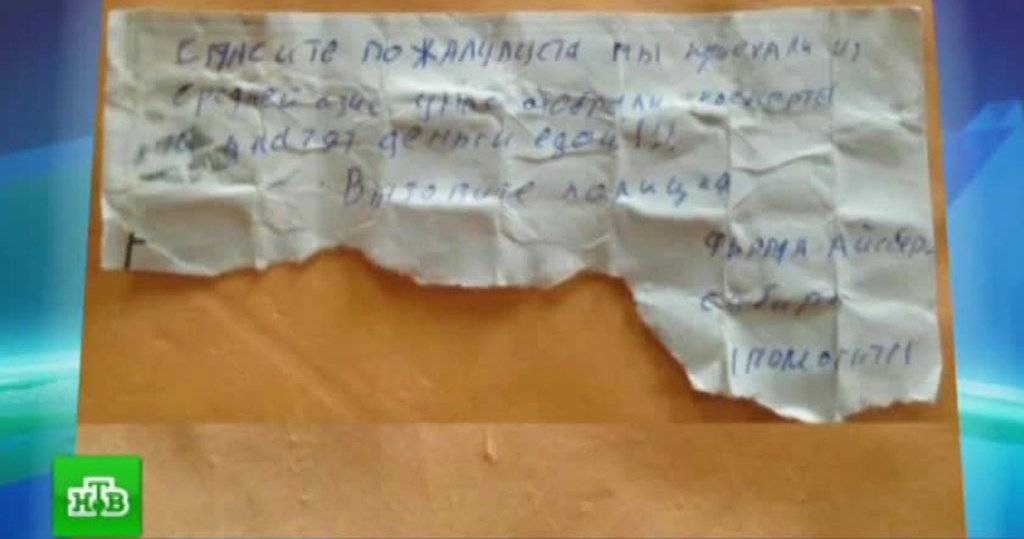 спасите пожалулуста мы приехали из
средней азие у нас отобрали паспорты
платят деньги едой!!!
полиция
фирма Айсберг
сибирь
!помогите!
НТВ